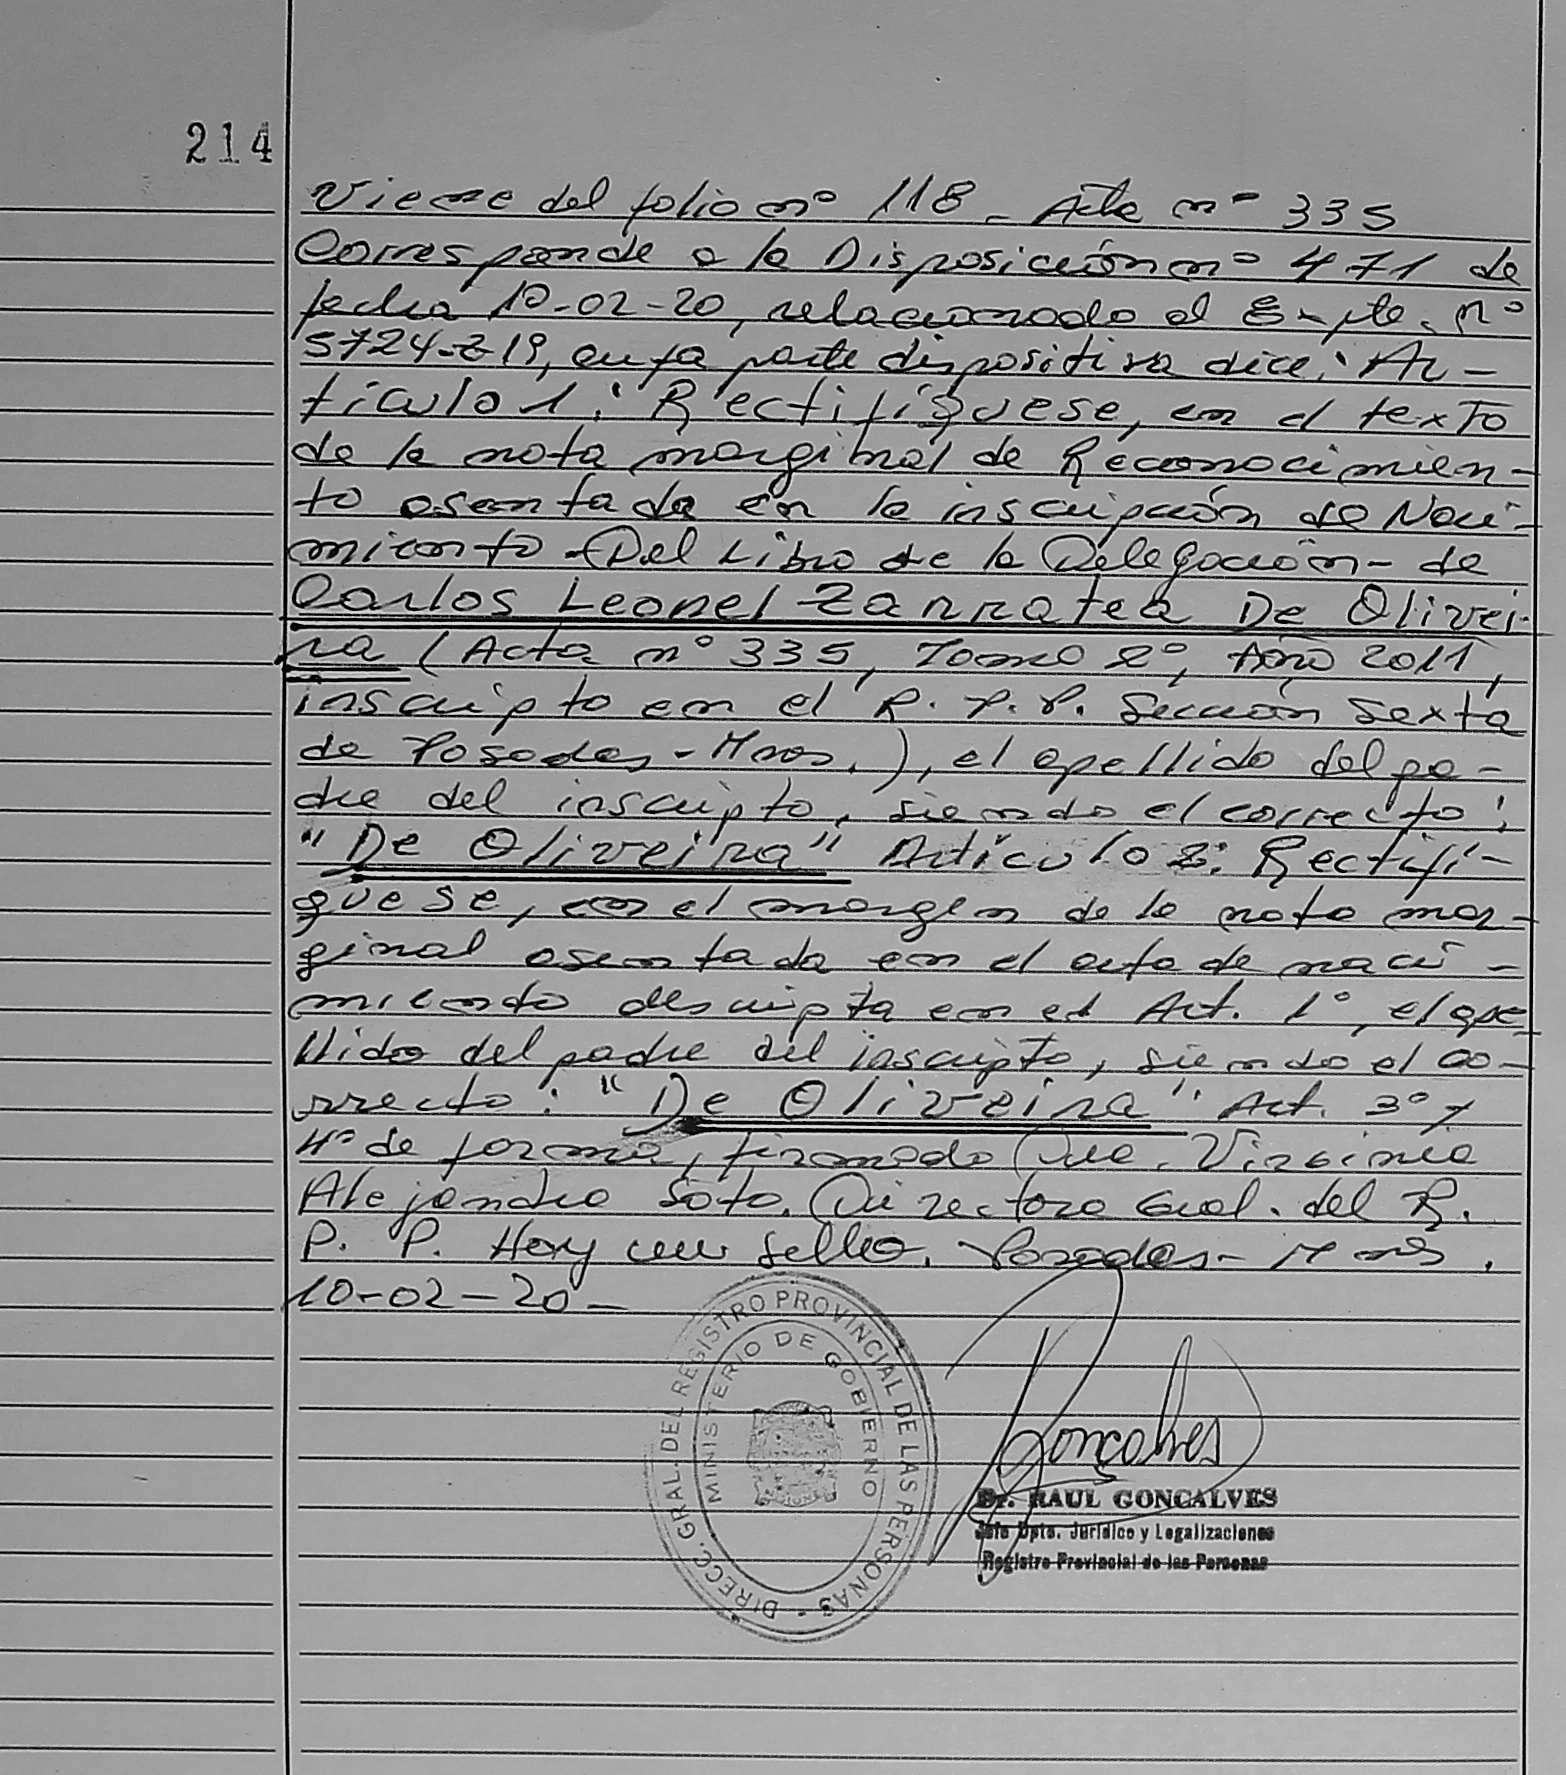 214
Viene del folio nº 118 - Acta nº 335
Corresponde a la Disposición nº 471 de
fecha 10-02-20, relacionado al Expte. nº
5724-Z-19, cuya parte dispositiva dice: Ar-
tículo 1: Rectifíquese, en el texto
de la nota marginal de Reconocimien-
to asentada en la inscripción de Naci-
miento -Del Libro de la Delegación- de
Carlos Leonel Zarratea De Olivei-
ra (Acta nº 335, Tomo 2º, Año 2011,
inscripto en el R. P. P. Sección Sexta
de Posadas - Mnes.), el apellido del pa-
dre del inscripto, siendo el correcto:
"De Oliveira" Artículo 2: Rectifí-
quese, en el margen de la nota mar-
ginal asentada en el acta de naci-
miento descripta en el Art. 1º, el ape-
llido del padre del inscripto, siendo el co-
rrecto: "De Oliveira". Art. 3º y
4º de forma, firmado Dra. Virginia
Alejandra Soto. Directora Gral. del R.
P. P. Hay un sello. Posadas - Mnes.
10-02-20-
DIRECC. GRAL. DEL REGISTRO PROVINCIAL DE LAS PERSONAS -
MINISTERIO DE GOBIERNO
MISIONES
Gonçalves
Dr. RAUL GONCALVES
Jefe Dpto. Jurídico y Legalizaciones
Registro Provincial de las Personas